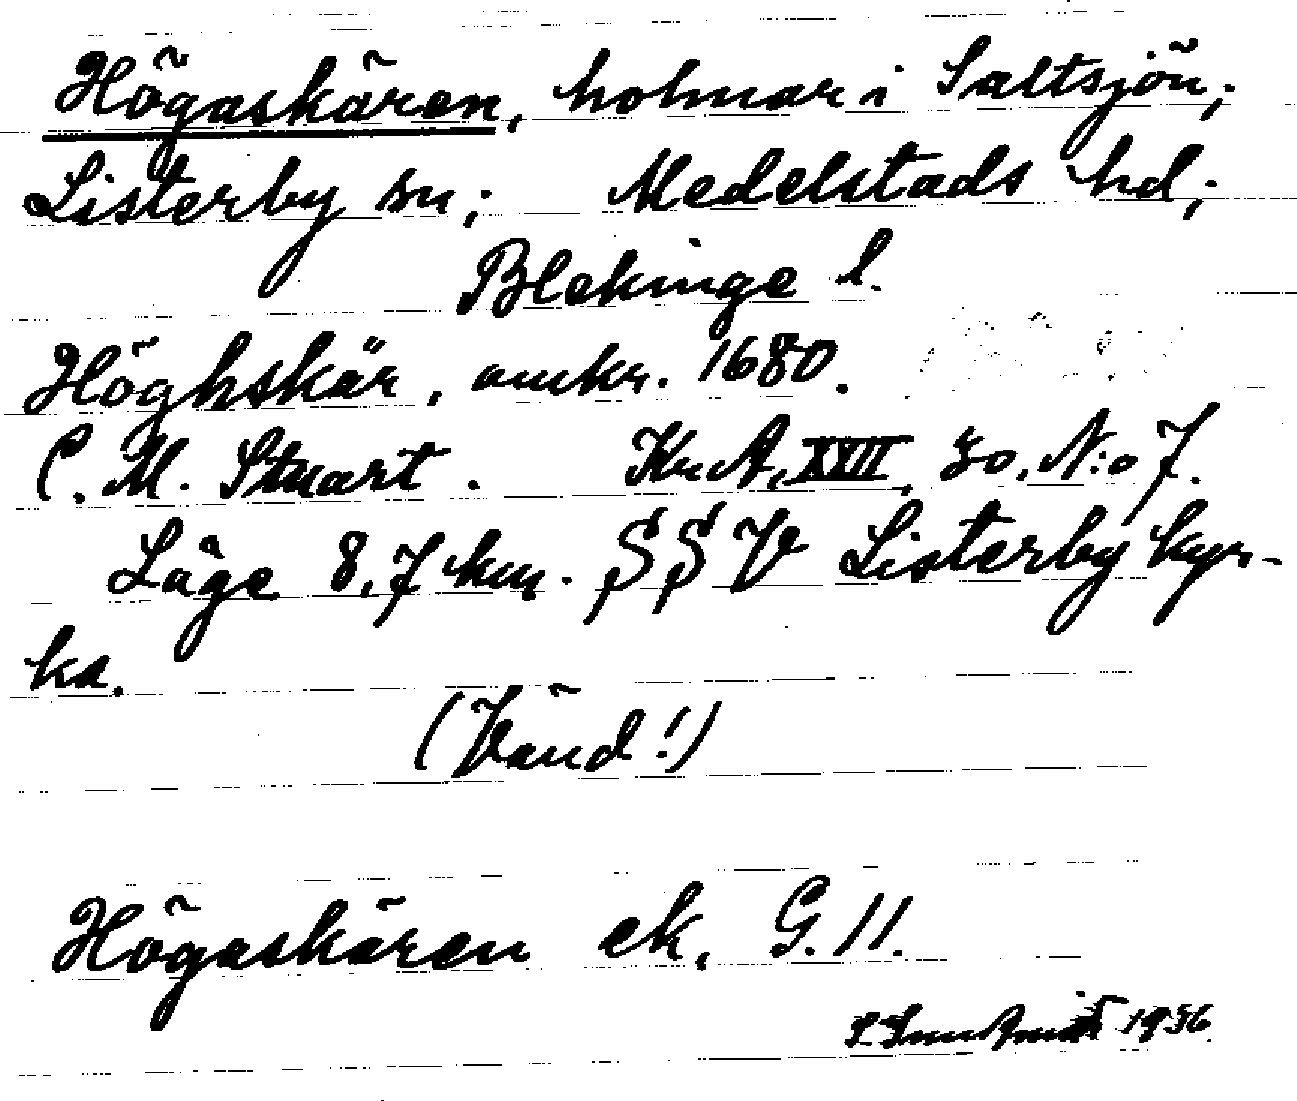 Högaskären, holmar i Saltsjön;
Listerby sn; Medelstads hd;
Blekinge l.
Höghskär, omkr. 1680.
C. M. Stuart. Kr.A, XXII, 30, N:o 7.
Läge 8,7 km. SSV Listerby kyr-
ka.
(Vänd!)
Högaskären ek, G. 11.
1936.